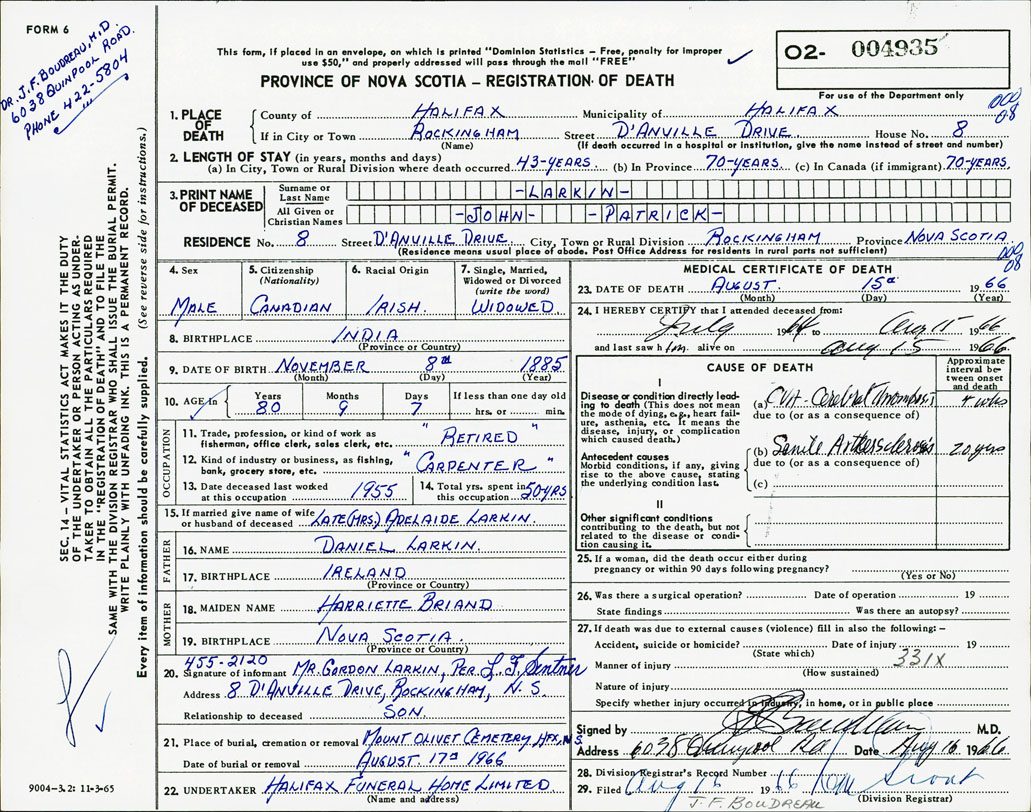 FORM 6
DR. J. F. BOUDREAU, M.D.
6038 QUINPOOL ROAD.
PHONE 422-5804
This form, if placed in an envelope, on which is printed "Dominion Statistics – Free, penalty for improper
use $50," and properly addressed will pass through the mail "FREE"
PROVINCE OF NOVA SCOTIA – REGISTRATION OF DEATH
02- 004935
For use of the Department only
000
08
SEC. 14 – VITAL STATISTICS ACT MAKES IT THE DUTY
OF THE UNDERTAKER OR PERSON ACTING AS UNDER-
TAKER TO OBTAIN ALL THE PARTICULARS REQUIRED
IN THE "REGISTRATION OF DEATH" AND TO FILE THE
SAME WITH THE DIVISION REGISTRAR WHO SHALL ISSUE THE BURIAL PERMIT.
WRITE PLAINLY WITH UNFADING INK. THIS IS A PERMANENT RECORD.
Every item of information should be carefully supplied. (See reverse side for instructions.)
1. PLACE OF DEATH
County of HALIFAX Municipality of HALIFAX
If in City or Town ROCKINGHAM Street D'ANVILLE DRIVE House No. 8
(Name) (If death occurred in a hospital or institution, give the name instead of street and number)
2. LENGTH OF STAY (in years, months and days)
(a) In City, Town or Rural Division where death occurred 43-YEARS (b) In Province 70-YEARS (c) In Canada (if immigrant) 70-YEARS.
3. PRINT NAME OF DECEASED
Surname or Last Name -LARKIN-
All Given or Christian Names -JOHN- -PATRICK-
RESIDENCE No. 8 Street D'ANVILLE DRIVE City, Town or Rural Division ROCKINGHAM Province NOVA SCOTIA
(Residence means usual place of abode. Post Office Address for residents in rural parts not sufficient)
000
08
4. Sex MALE
5. Citizenship (Nationality) CANADIAN
6. Racial Origin IRISH.
7. Single, Married, Widowed or Divorced (write the word) WIDOWED
8. BIRTHPLACE INDIA
(Province or Country)
9. DATE OF BIRTH NOVEMBER 8TH 1885
(Month) (Day) (Year)
10. AGE in Years Months Days If less than one day old
80 9 7 hrs. or min.
OCCUPATION
11. Trade, profession, or kind of work as
fisherman, office clerk, sales clerk, etc. "RETIRED"
12. Kind of industry or business, as fishing,
bank, grocery store, etc. "CARPENTER"
13. Date deceased last worked
at this occupation 1955
14. Total yrs. spent in
this occupation 50 YRS
15. If married give name of wife
or husband of deceased LATE (MRS.) ADELAIDE LARKIN.
FATHER
16. NAME DANIEL LARKIN.
17. BIRTHPLACE IRELAND
(Province or Country)
MOTHER
18. MAIDEN NAME HARRIETTE BRIAND
19. BIRTHPLACE NOVA SCOTIA.
(Province or Country)
455-2120
20. Signature of informant MR. GORDON LARKIN, PER L. F. Sentner
Address 8 D'ANVILLE DRIVE, ROCKINGHAM, N. S
Relationship to deceased SON.
21. Place of burial, cremation or removal MOUNT OLIVET CEMETERY HFX, N.S.
Date of burial or removal AUGUST. 17TH 1966
22. UNDERTAKER HALIFAX FUNERAL HOME LIMITED.
(Name and address)
9004-3.2: 11-3-65
MEDICAL CERTIFICATE OF DEATH
23. DATE OF DEATH AUGUST. 15TH 1966
(Month) (Day) (Year)
24. I HEREBY CERTIFY that I attended deceased from:
July 1964 to Aug 15 1966
and last saw him alive on Aug 15 1966
CAUSE OF DEATH
Approximate interval between onset and death
I
Disease or condition directly lead-
ing to death (This does not mean
the mode of dying, e.g., heart fail-
ure, asthenia, etc. It means the
disease, injury, or complication
which caused death.)
(a) CVA - Cerebral Thrombosis 4 wks
due to (or as a consequence of)
Antecedent causes
Morbid conditions, if any, giving
rise to the above cause, stating
the underlying condition last.
(b) Senile Arteriosclerosis 20 yrs
due to (or as a consequence of)
(c)
II
Other significant conditions
contributing to the death, but not
related to the disease or condi-
tion causing it.
25. If a woman, did the death occur either during
pregnancy or within 90 days following pregnancy?
(Yes or No)
26. Was there a surgical operation? Date of operation 19
State findings Was there an autopsy?
27. If death was due to external causes (violence) fill in also the following: –
Accident, suicide or homicide? Date of injury 19
(State which) 331X
Manner of injury
(How sustained)
Nature of injury
Specify whether injury occurred in industry, in home, or in public place
Signed by J F Boudreau M.D.
Address 6038 Quinpool Rd Date Aug 16 1966
28. Division Registrar's Record Number
29. Filed Aug 16 1966
(Division Registrar)
J. F. BOUDREAU